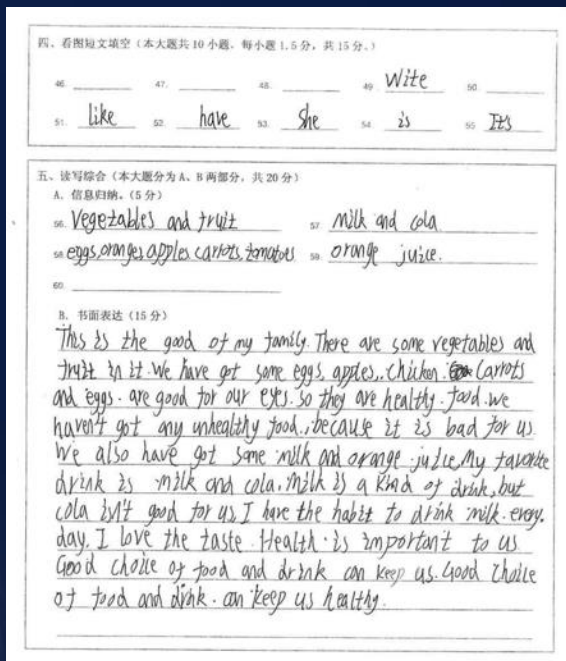 四、看图短文填空（本大题共10小题，每小题1.5分，共15分。）
46. 47. 48. 49. Wite 50.
51. like 52. have 53. She 54. is 55. It's
五、读写综合（本大题分为A、B两部分，共20分）
A. 信息归纳。（5分）
56. Vegetables and fruit 57. Milk and cola
58. eggs,oranges,apples,carrots,tomatoes 59. orange juice.
60.
B. 书面表达（15分）
This is the good of my family. There are some vegetables and
fruit in it. We have got some eggs, apples, chicken. Carrots
and eggs. are good for our eyes. so they are healthy. food. we
haven't got any unhealthy food., because it is bad for us.
We also have got some milk and orange juice, My favorite
drink is milk and cola. Milk is a kind of drink, but
cola isn't good for us, I have the habit to drink milk. every.
day. I love the taste. Health. is important to us
Good choice of food and drink can keep us. Good choice
of food and drink. can keep us healthy.